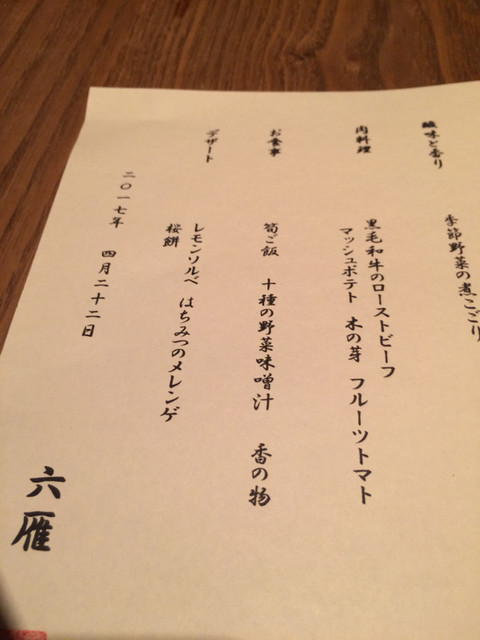 酸味と香り
季節野菜の煮こごり
肉料理
黒毛和牛のローストビーフ
マッシュポテト 木の芽 フルーツトマト
お食事
筍ご飯 十種の野菜味噌汁 香の物
デザート
レモンソルベ はちみつのメレンゲ
桜餅
二〇一七年 四月二十二日
六雁